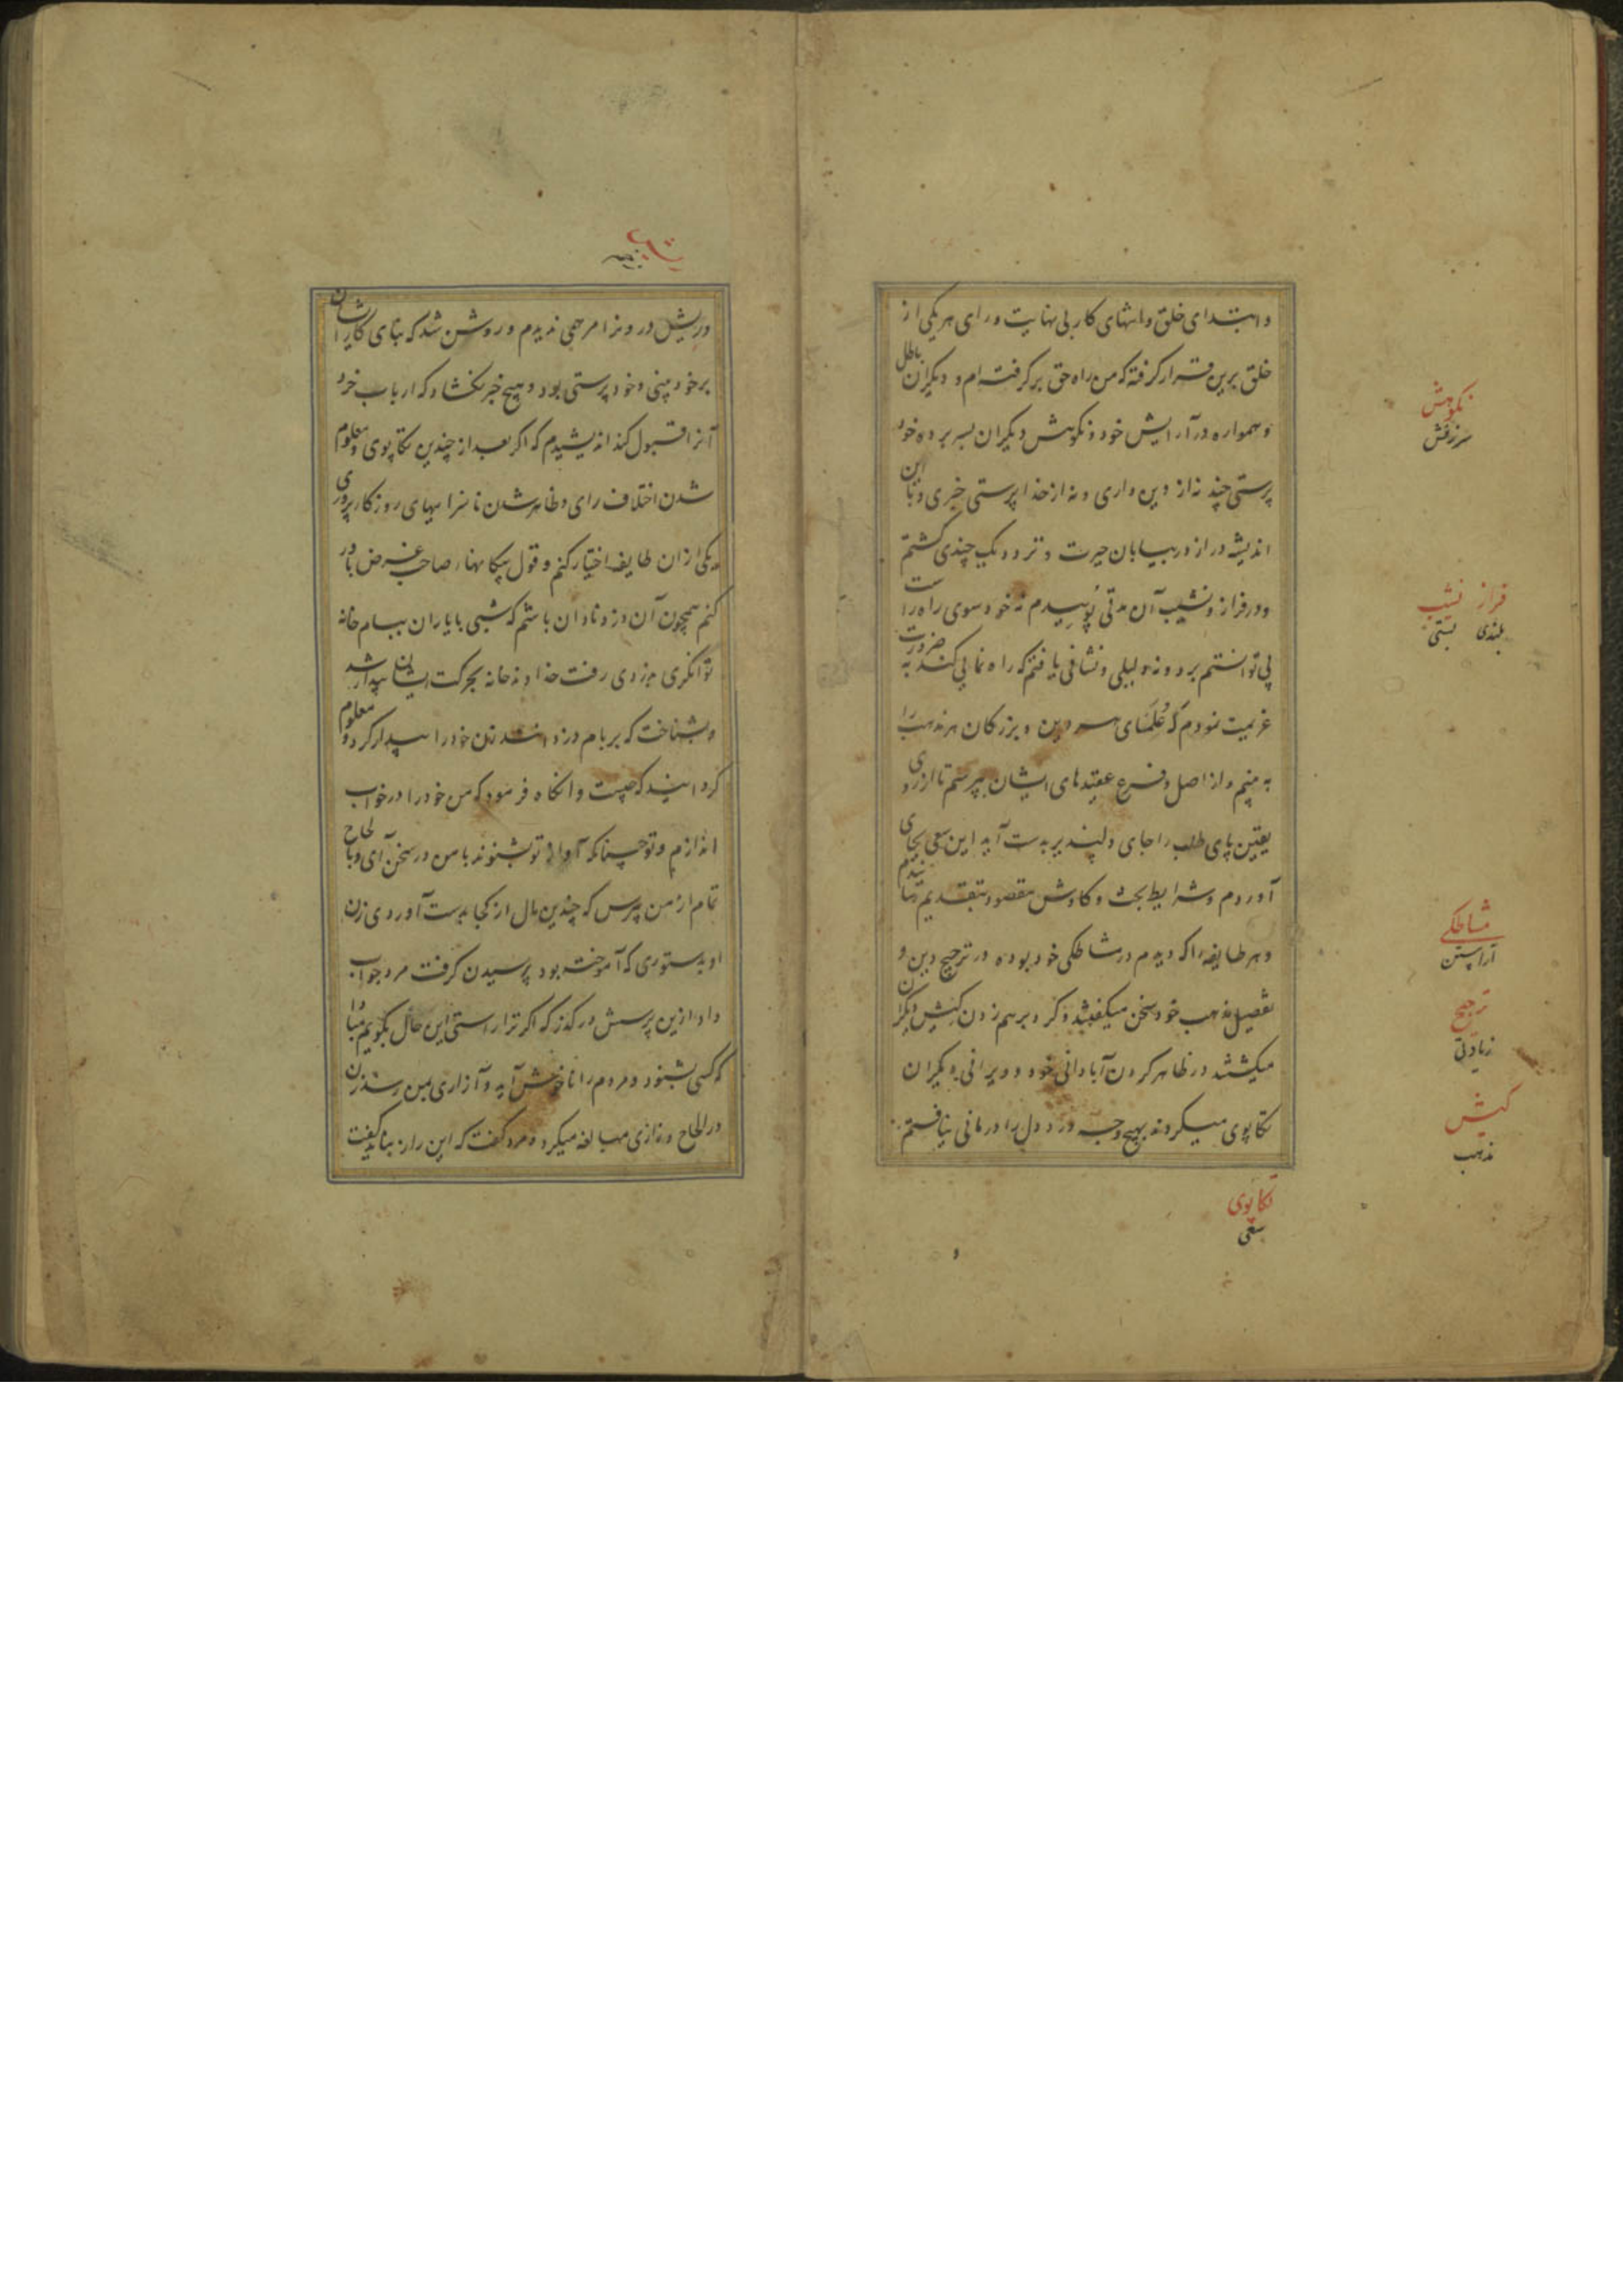 وابتدای خلق وانتهای کار بی نهایت ورای هر یکی از
خلق برین قرار گرفته که من راه حق بر گرفته ام و دیگران باطل
و همواره در آرایش خود و نکوهش دیگران بسر برده خود
پرستی چند نه از دین داری و نه از خدا پرستی خبری و با این
اندیشه دراز در بیابان حیرت و تردد یک چندی گشتم
و در فراز و نشیب آن مدتی پوییدم نه خود سوی راه راست
پی توانستم برد و نه دلیلی و نشانی یافتم که راه نمایی کند به ضرورت
عزیمت نمودم که علمای هر دین و بزرگان هر مذهب را
به بینم و از اصل و فرع عقیدهای ایشان بپرسم تا از روی
یقین پای طلب را جای دلپذیر بدست آید این سعی بجای
آوردم و شرایط بحث و کاوش مقصود بتقدیم
و هر طایفه را که دیدم در مشاطگی خود بوده در ترجیح دین و
تفصیل مذهب خود سخن میگفتند و گرد برهم زدن کیش دیگران
میگشتند در ظاهر کردن آبادانی خود و ویرانی دیگران
تکاپوی میکردند بهیچ وجه درد دل را درمانی نیافتم
نکوهش
سرزنش
فراز نشیب
بلندی پستی
مشاطگی
آراستن
ترجیح
زیادتی
کیش
مذهب
تکاپوی
سعی
در پیش در و نزا مرحمی ندیدم و روشن شد که بنای کار ایشان
بر خود بینی و خود پرستی بود و هیچ خبر نگشاد که ارباب خرد
آنرا قبول کند اندیشیدم که اگر بعد از چندین تکاپوی و معلوم
شدن اختلاف رای و ظاهر شدن ناسزاییهای روزگار پروری
یکی ازان طایفه اختیار کنم و قول بیگانهاء صاحب غرض باور
کنم همچون آن دزد نادان باشم که شبی با یاران ببام خانه
توانگری بدزدی رفت خداوند خانه بحرکت ایشان بیدار شد
و بشناخت که بر بام دزدانند زن خود را بیدار کرد و معلوم
گردانید که چیست وانگاه فرمود که من خود را در خواب
اندازم و تو چنانکه آواز تو بشنوند با من در سخن آی و بالحاح
تمام از من بپرس که چندین مال از کجا بدست آوردی زن
او بدستوری که آموخته بود پرسیدن گرفت مرد جواب
داد ازین پرسش در گذر که اگر ترا راستی این حال بگویم مبادا
که کسی بشنود و مردم را ناخوش آید و آزاری بمن رسد زن
در الحاح و زاری مبالغه میکرد و مرد گفت که این راز بباید گفت